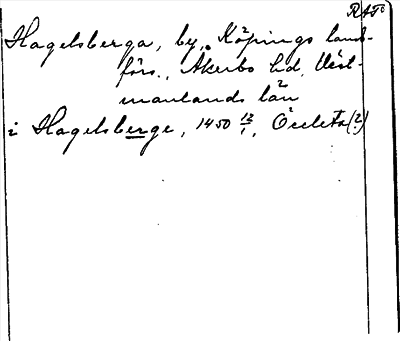 RAP°
Hagelsberga, by, Köpings lands-
förs., Åkerbo hd, Väst-
manlands län
i Hagelsberge, 1450 13/1, Öcleta (?)